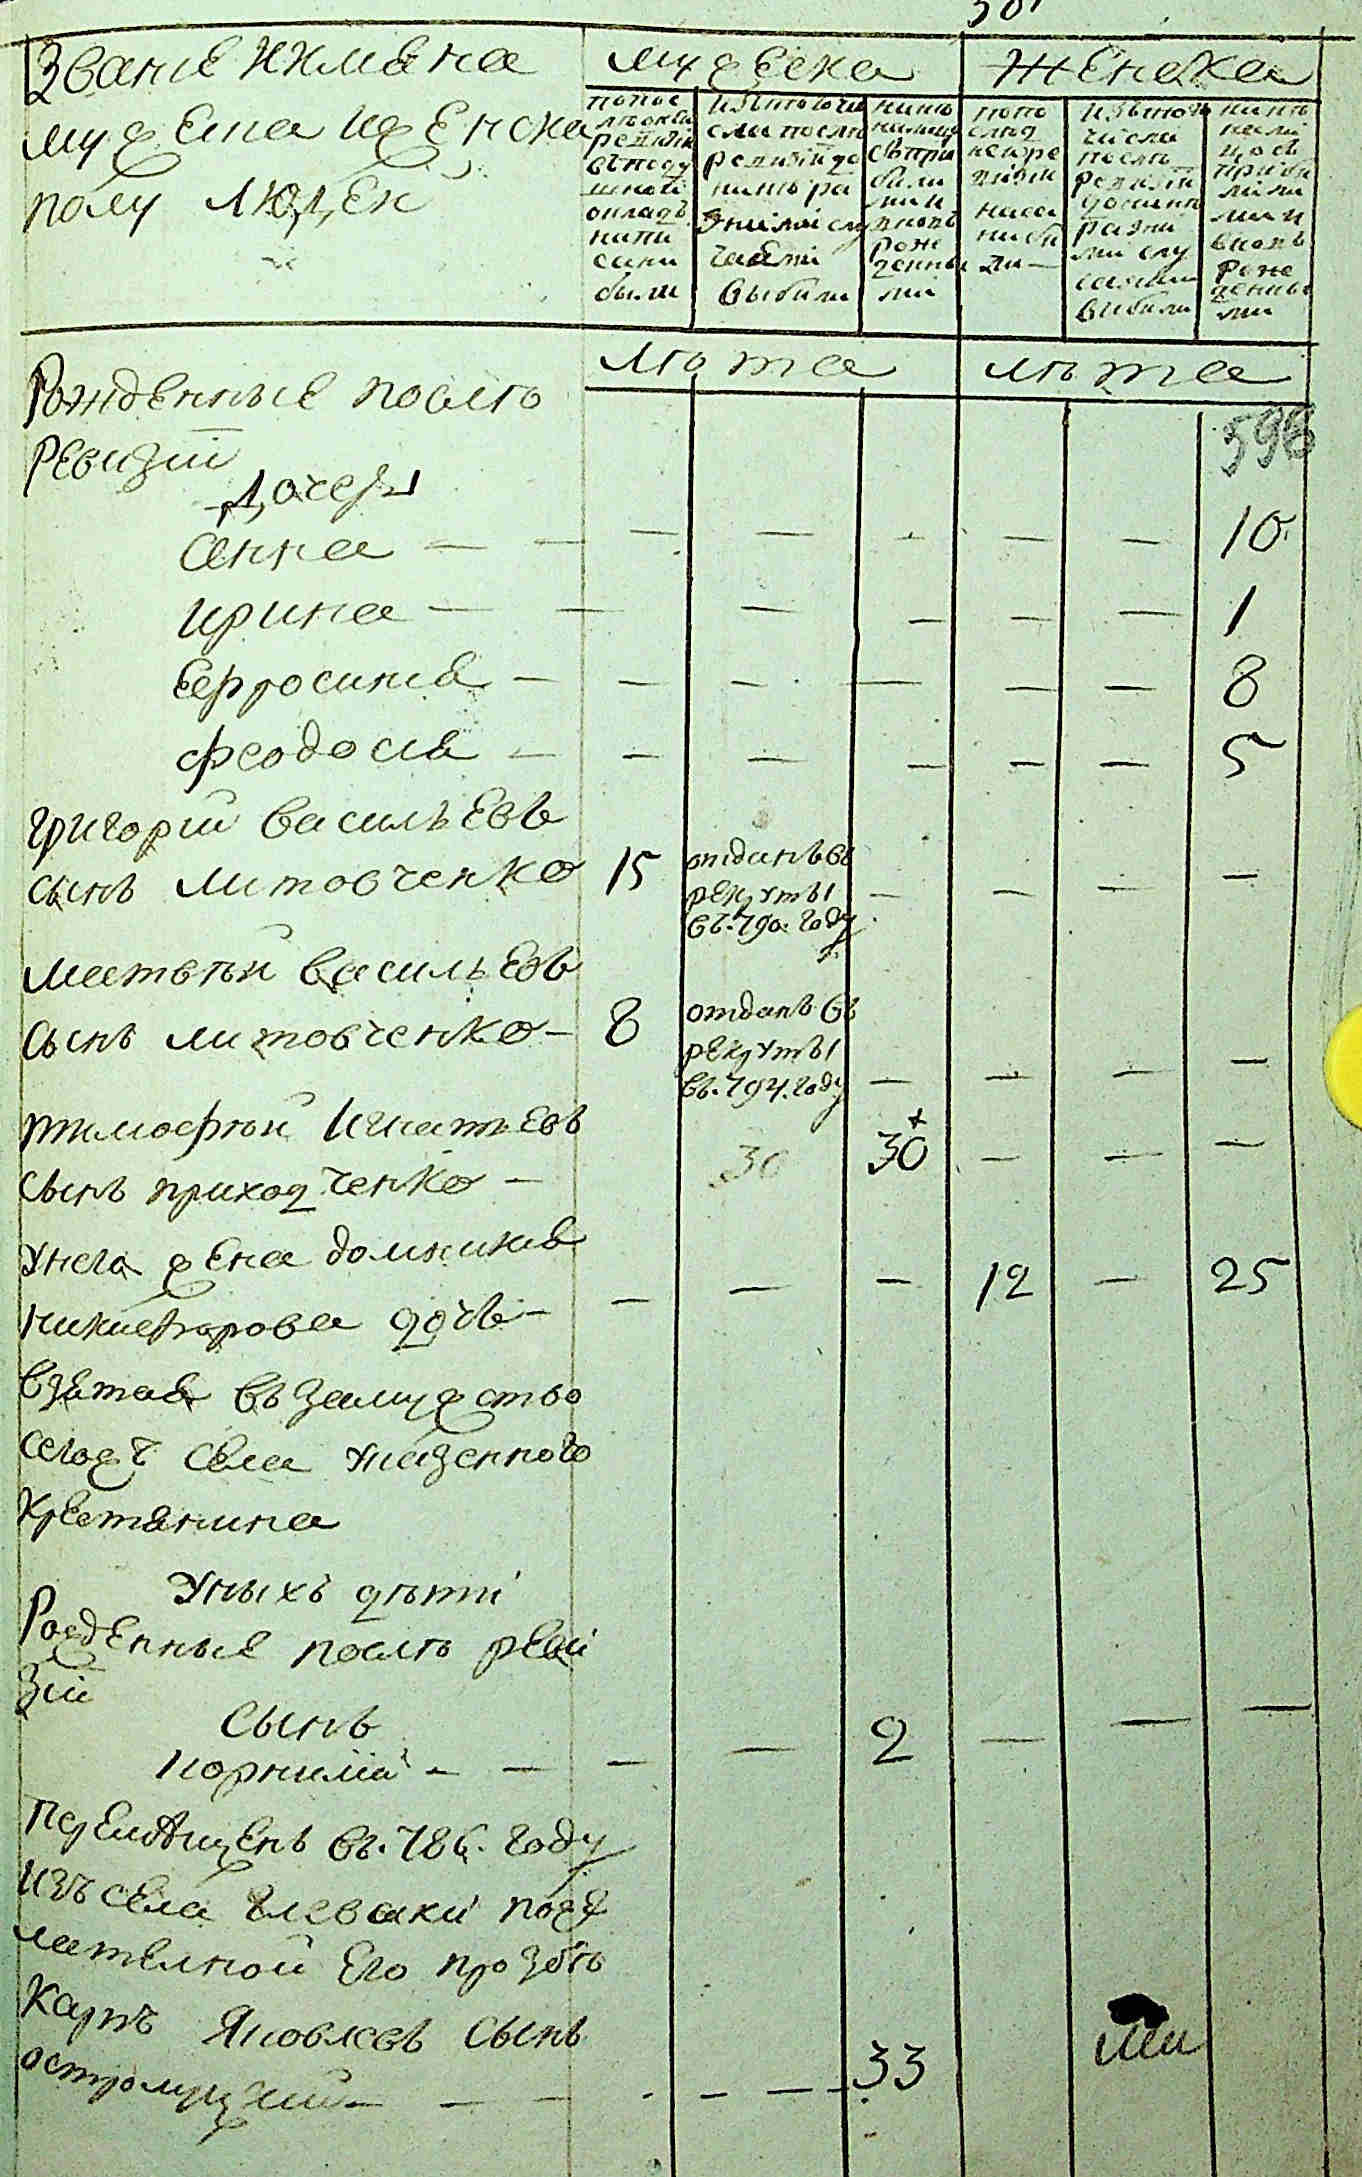 Званіе и имяна
мужеска и женска
полу людей
мужеска
женска
попос
ледней
ревизіи
въ поду
шной
окладъ
напи
саны
были
изъ того чи
сла после
ревизіи до
ныне ра
зными слу
чаями
выбыли
ныне
на лицо
съ при
были
ми и
вновь
рож
денны
ми
по по
след
ней ре
визіи
напи
саны бы
ли
изъ того
числа
после
ревизіи
до ныне
разны
ми слу
чаями
выбыли
ныне
на ли
цо съ
прибы
лыми
и
вновь
рож
денны
ми
лѣта
лѣта
Рожденные послѣ
ревизіи
596
дочеры
анна — — — — — — — 10
ирина — — — — — — 1
Евфросинія — — — — — — 8
феодосія — — — — — — 5
григорий васильевъ
сынъ литовченко 15 отданъ въ рекруты въ 790. году — — — —
матвѣй васильевъ
сынъ литовченко — 8 отданъ въ рекруты въ 794. году — — — —
тимофѣй игнатьевъ
сынъ приходченко — 30 30 — — —
у него жена домникія
никифорова дочь — — — — 12 — 25
взятая въ замужство
сегожъ села казенного
крестянина
у ныхъ дѣти
Рожденные послѣ реви
зіи
сынъ
корнилій — — — — 2 — — —
перемѣщенъ въ 786. году
изъ села глеваки по же
лателной его прозбѣ
карпъ яковлевъ сынъ
остромуцкий — — — — — — 33
ми